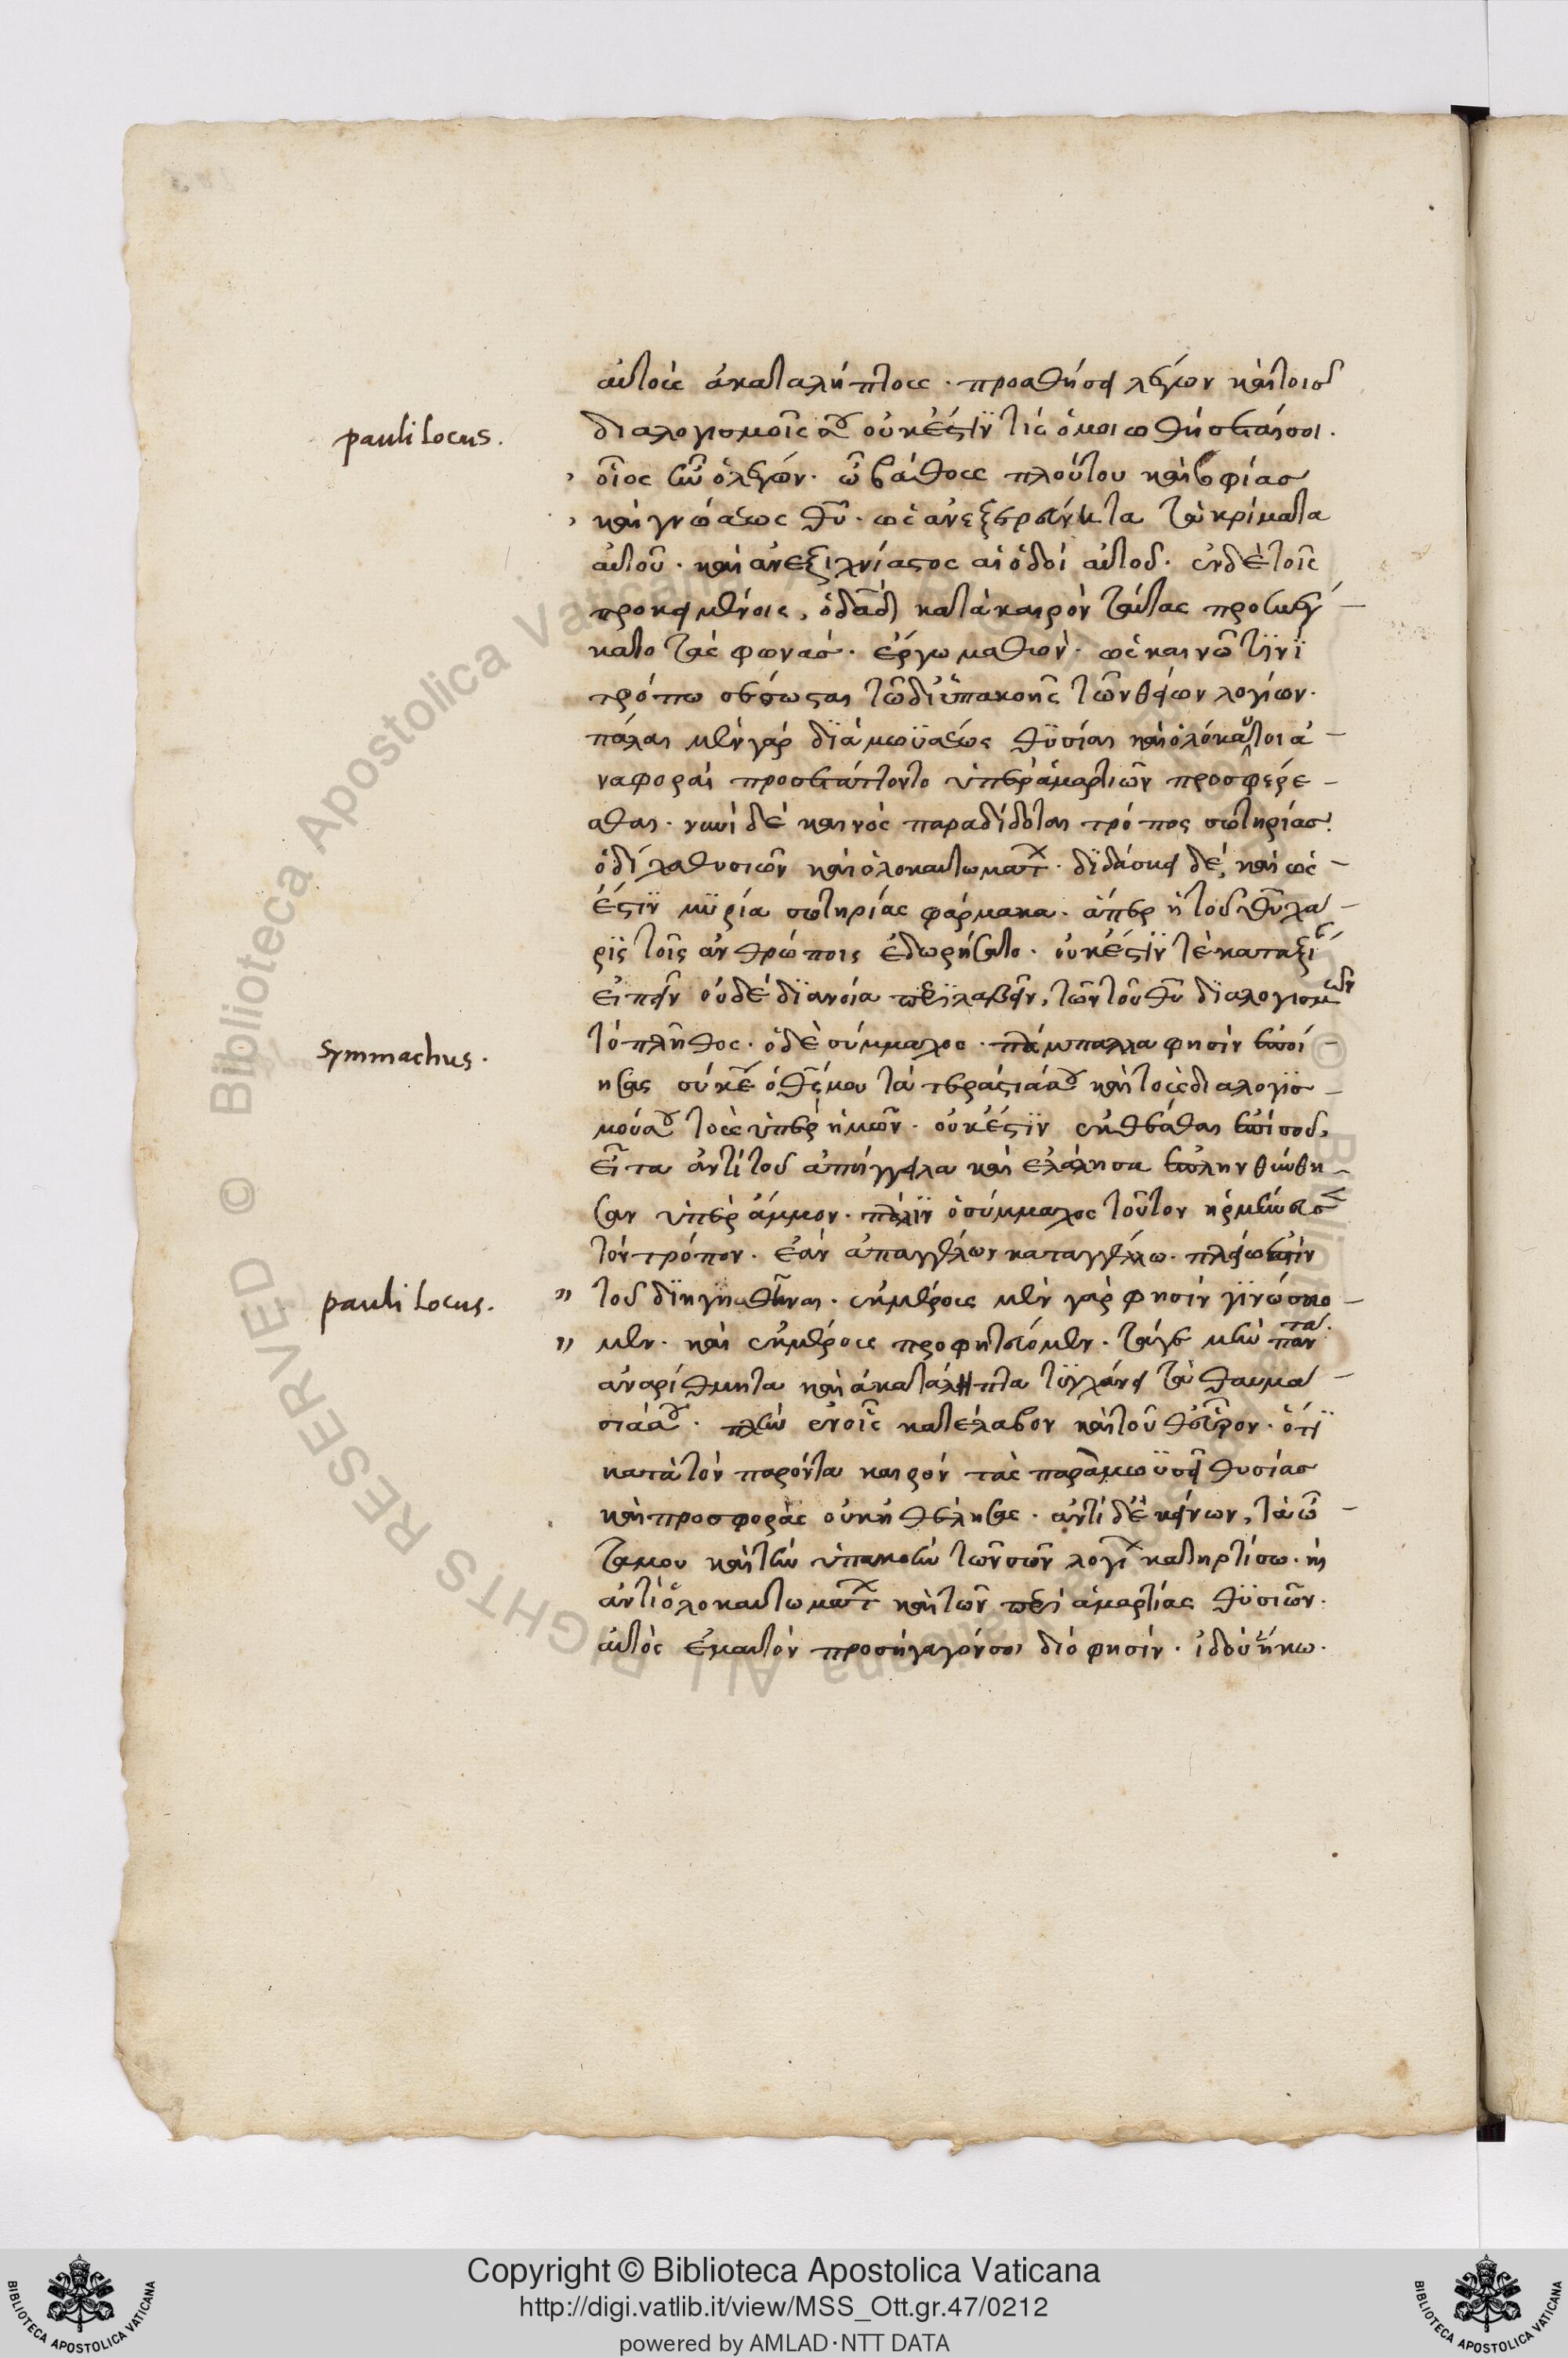 αὐτοὺς ἀκαταλήπτους · προσθήσει λέγων καὶ τοῖς
pauli locus. διαλογισμοῖς σου οὐκ ἔστιν τίς ὁμοιωθήσεταί σοι.
οἷος ἦν ὁ λέγων · ὦ βάθους πλούτου καὶ σοφίας
καὶ γνώσεως θυ · ὡς ἀνεξερεύνητα τὰ κρίματα
αὐτοῦ · καὶ ἀνεξιχνίαστος αἱ ὁδοὶ αὐτοῦ · ἐν δὲ τοῖς
προκειμένοις, ὁ δαδ κατὰ καιρὸν ταύτας
τὰς φωνάς · ἔργω μαθὼν · ὡς καινῶ τινὶ
τρόπω σέσωσται τῶ δι' ὑπακοῆς τῶν θείων λογίων ·
πάλαι μὲν γὰρ διὰ μωϋσέως θυσίαι καὶ ὁλόκαυτοι ἀ-
ναφοραὶ προσετάττοντο ὑπὲρ ἁμαρτιῶν προσφέρε-
σθαι · νυνὶ δὲ καινὸς παραδίδοται τρόπος σωτηρίας
ὁ δίχα θυσιῶν καὶ ὁλοκαυτωμάτ · διδάσκει δὲ, καὶ ὡς
ἔστιν μυρία σωτηρίας φάρμακα · ἅπερ ἡ τοῦ θυ χά-
ρις τοῖς ἀνθρώποις ἐδωρήσατο · οὐκ ἔστιν τὲ κατ' ἀξί
εἰπεῖν οὐδὲ διανοία περιλαβεῖν, τῶν τοῦ θυ διαλογισμῶν
Symmachus. τὸ πλῆθος · ὁ δὲ σύμμαχος · φησὶν ἐποί-
ησας σὺ κε ὁ θς μου τὰ τεράστιά σου καὶ τοὺς διαλογισ-
μούς σου τοὺς ὑπὲρ ἡμῶν · οὐκ ἔστιν ἐκθέσθαι ἐπὶ σοῦ,
εἶτα ἀντὶ τοῦ ἀπήγγειλα καὶ ἐλάλησα ἐπληνθύνθη-
σαν ὑπὲρ ἄμμον · πάλιν ὁ σύμμαχος τοῦτον ἡρμήνευσε
τὸν τρόπον · ἐὰν ἀπαγγέλλων καταγγέλλω · πλείω ἐστὶν
pauli locus. " τοῦ διηγηθῆναι · ἐκ μέρους μὲν γάρ φησιν γινώσκο-
" μεν · καὶ ἐκ μέρους προφητεύομεν · τά γε μὴν πάντα
ἀναρίθμητα καὶ ἀκατάληπτα τυγχάνει τὰ θαυμά-
σιά σου · πλὴν ἐν οἷς κατέλαβον καὶ τοῦθ' εὗρον · ὅτι
κατὰ τὸν παρόντα καιρὸν τὰς παρὰ μωϋσεῖ θυσίας
καὶ προσφορὰς οὐκ ἠθέλησας · ἀντὶ δ' ἐκείνων, τὰ ὦ
τά μου καὶ τὴν ὑπακοὴν τῶν σῶν λογί κατηρτίσω · ἢ
ἀντὶ ὁλοκαυτωμάτ καὶ τῶν περὶ ἁμαρτίας θυσιῶν ·
αὐτὸς ἐμαυτὸν προσήγαγόν σοι διό φησιν · ἰδοὺ ἥκω ·
Copyright © Biblioteca Apostolica Vaticana
http://digi.vatlib.it/view/MSS_Ott.gr.47/0212
powered by AMLAD·NTT DATA